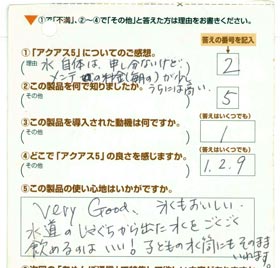 ▼①で「不満」、②~④で「その他」と答えた方は理由をお書きください。
答えの番号を記入
①「アクアス5」についてのご感想。
(理由 水自体は、申し分ないけど…
メンテの料金(期の)が
うちには高い。)
2
②この製品を何で知りましたか。
(その他
)
5
(答えはいくつでも)
③この製品を導入された動機は何ですか。
(その他
)
1
(答えはいくつでも)
④どこで「アクアス5」の良さを感じますか。
(その他
)
1.2.9
⑤この製品の使い心地はいかがですか。
Very Good、氷もおいしい。
水道のじゃぐちから出た水をごくごく
飲めるのはいい!子どもの水筒にもそのまま
いれます。